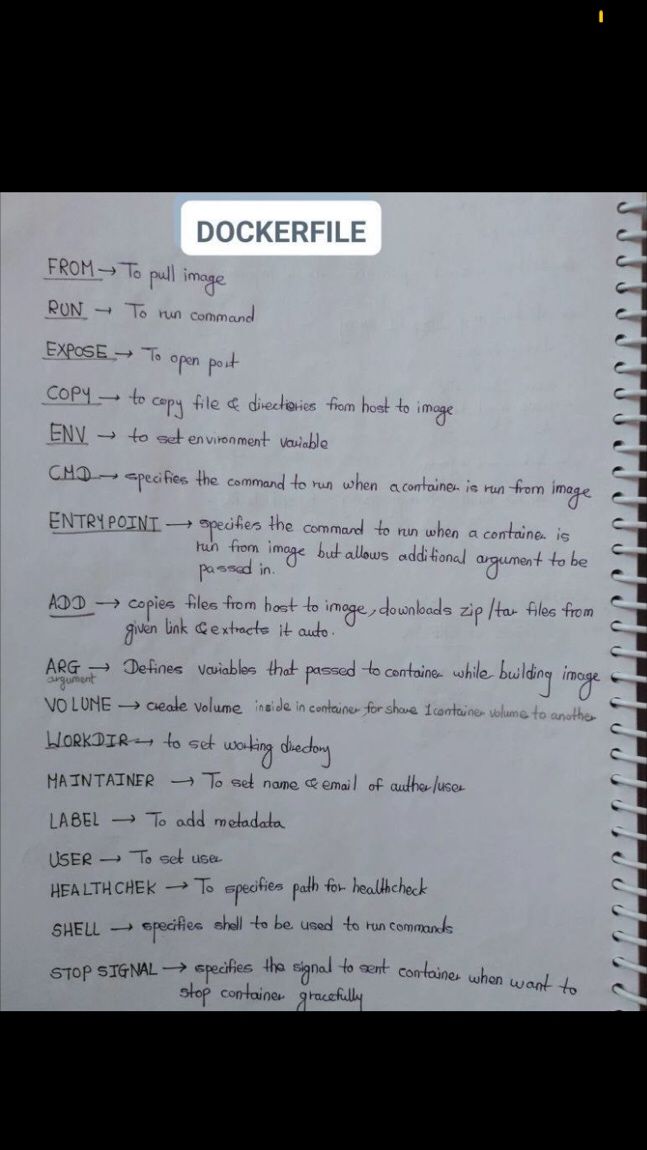 DOCKERFILE
FROM → To pull image
RUN → To run command
EXPOSE → To open port
COPY → to copy file & directiories from host to image
ENV → to set environment variable
CMD → specifies the command to run when a container is run from image
ENTRYPOINT → specifies the command to run when a container is
run from image but allows additional argument to be
passed in.
ADD → copies files from host to image, downloads zip/tar files from
given link & extracts it auto.
ARG → Defines variables that passed to container while building image
argument
VOLUME → create volume inside in container for share 1 container volume to another
WORKDIR → to set working directory
MAINTAINER → To set name & email of auther/user
LABEL → To add metadata
USER → To set user
HEALTHCHEK → To specifies path for healthcheck
SHELL → specifies shell to be used to run commands
STOP SIGNAL → specifies the signal to sent container when want to
stop container gracefully